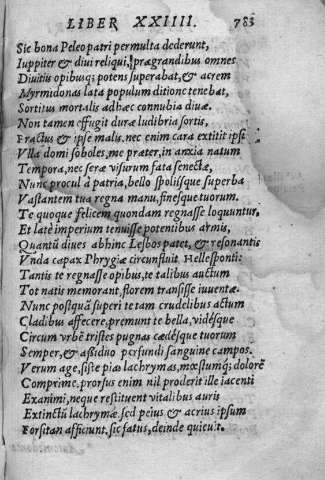 LIBER XXIIII. 783
Sic bona Peleo patri permulta dederunt,
Iuppiter & diui reliqui, prægrandibus omnes
Diuitiis opibusq; potens superabat, & acrem
Myrmidonas lata populum ditione tenebat,
Sortitus mortalis adhæc connubia diuæ.
Non tamen effugit duræ ludibria sortis,
Fractus & ipse malis. nec enim cara extitit ipsi
Vlla domi soboles, me præter, in anxia natum
Tempora, nec seræ visurum fata senectæ,
Nunc procul à patria, bello spoliisque superba
Vastantem tua regna manu, finesque tuorum.
Te quoque felicem quondam regnasse loquuntur,
Et latè imperium tenuisse potentibus armis,
Quantū diues abhinc Lesbos patet, & resonantis
Vnda capax Phrygiæ circunfluit Hellesponti:
Tantis te regnasse opibus, te talibus auctum
Tot natis memorant, florem transisse iuuentæ.
Nunc postquā superi te tam crudelibus actum
Cladibus affecere, premunt te bella, vidésque
Circum vrbē tristes pugnas cædésque tuorum
Semper, & assiduo perfundi sanguine campos.
Verum age, siste pias lachrymas, mœstumq; dolorē
Comprime. prorsus enim nil proderit ille iacenti
Exanimi, neque restituent vitalibus auris
Extinctū lachrymæ. sed peius & acrius ipsum
Forsitan afficiunt. sic fatus, deinde quieuit.